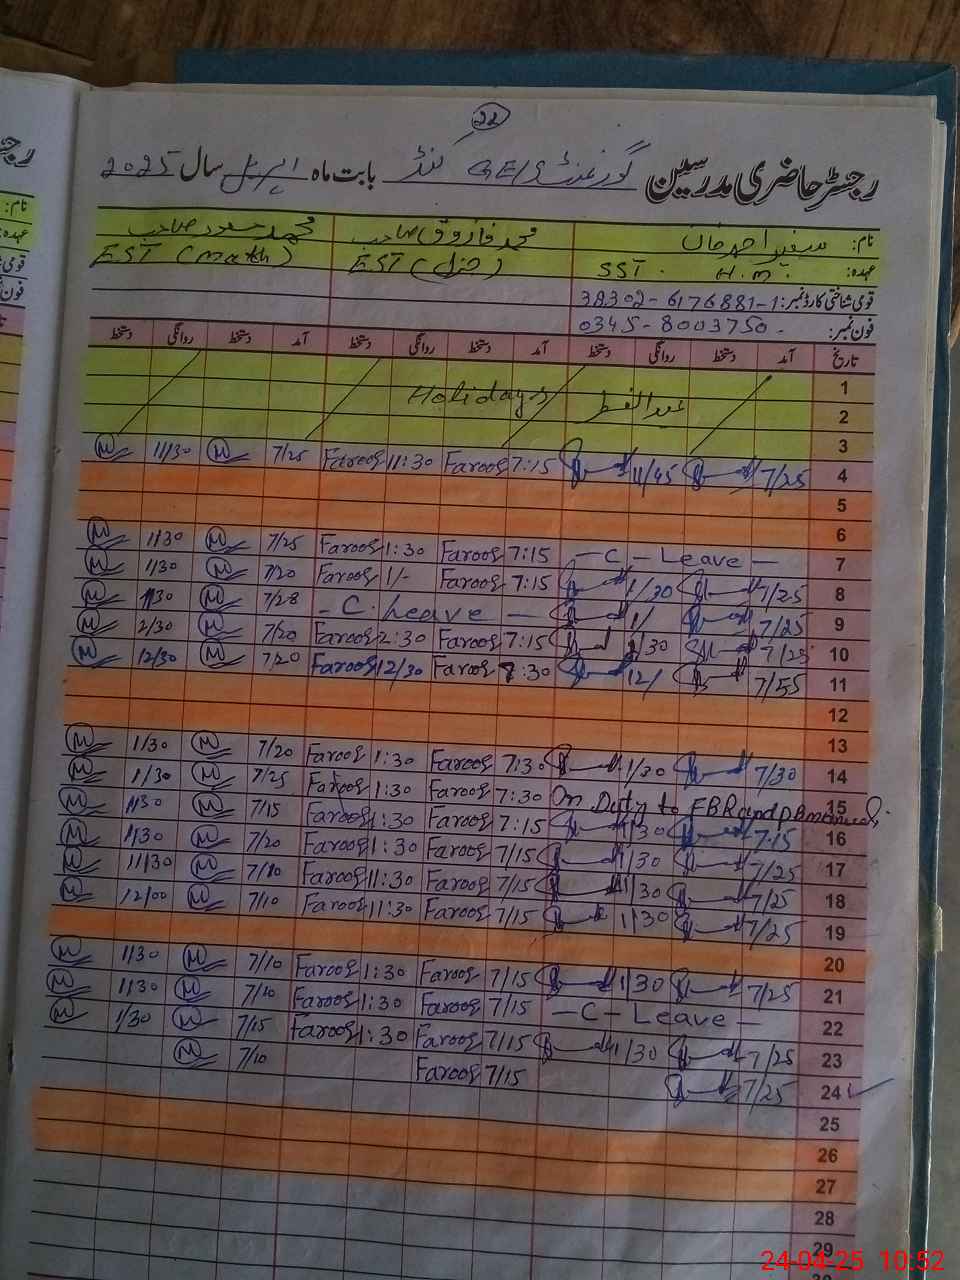 22
رجسٹر حاضری مدرسین گورنمنٹ GE/S کنڈ بابت ماہ اپریل سال 2025
نام: سفیر احمد خان محمد فاروق صاحب محمد مسعود صاحب
عہدہ: SST . H.M. EST (جنرل) EST (Math)
قومی شناختی کارڈ نمبر: 38302-6176881-1
فون نمبر: 0345-8003750
تاریخ آمد دستخط روانگی دستخط آمد دستخط روانگی دستخط آمد دستخط روانگی دستخط
1
Holidays عید الفطر 2
3
M 11/30 M 7/25 Farooq 11:30 Farooq 7:15 11/45 7/25 4
5
6
M 1/30 M 7/25 Farooq 1:30 Farooq 7:15 - C - Leave - 7
M 1/30 M 7/20 Farooq 1/- Farooq 7:15 1/30 7/25 8
M 1/30 M 7/28 - C. Leave - 1/ 7/25 9
M 2/30 M 7/20 Farooq 2:30 Farooq 7:15 2/30 7/25 10
M 12/30 M 7/20 Farooq 12/30 Farooq 7:30 12/ 7/55 11
12
13
M 1/30 M 7/20 Farooq 1:30 Farooq 7:30 1/30 7/30 14
M 1/30 M 7/25 Farooq 1:30 Farooq 7:30 On Duty to FBR and 15
M 1/30 M 7/15 Farooq 1:30 Farooq 7:15 1/30 7:15 16
M 1/30 M 7/20 Farooq 1:30 Farooq 7/15 1/30 7/25 17
M 11/30 M 7/10 Farooq 11:30 Farooq 7/15 1/30 7/25 18
M 12/00 M 7/10 Farooq 11:30 Farooq 7/15 1/30 7/25 19
20
M 1/30 M 7/10 Farooq 1:30 Farooq 7/15 1/30 7/25 21
M 1/30 M 7/10 Farooq 1:30 Farooq 7/15 - C - Leave - 22
M 1/30 M 7/15 Farooq 1:30 Farooq 7/15 1/30 7/25 23
M 7/10 Farooq 7/15 7/25 24
25
26
27
28
29
24-04-25 10:52